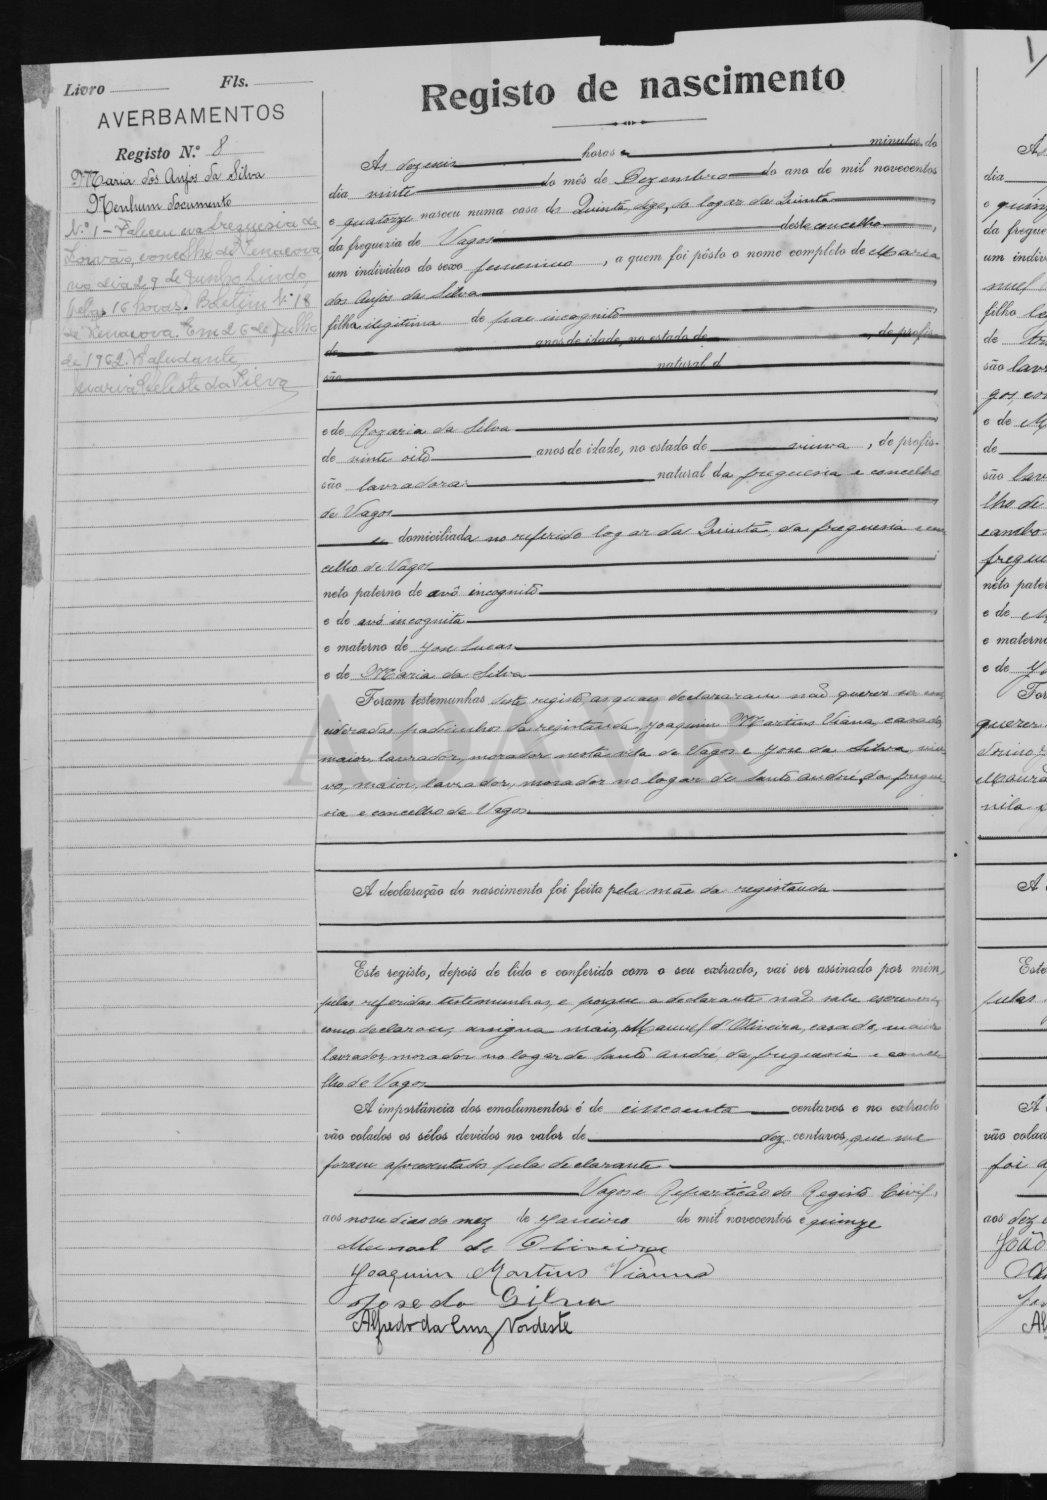 Livro Fls.
AVERBAMENTOS
Registo N.º 8
Maria dos Anjos da Silva
Nenhum documento
N.º 1 - Faleceu na freguesia de
Lorvão, concelho de Penacova
no dia 29 de Junho findo,
pelas 16 horas. Boletim N.º 18
de Penacova. Em 26 de Julho
de 1962. O ajudante,
Maria Celeste da Silva
Registo de nascimento
As dezeseis horas e minutos do
dia vinte do mês de Dezembro do ano de mil novecentos
e quatorze nasceu numa casa do Quintã, digo, do logar da Quintã
da freguezia de Vagos deste concelho,
um individuo do sexo femenino, a quem foi pôsto o nome completo de Maria
dos Anjos da Silva
filha ilegitima de pae incognito
de anos de idade, no estado de, de profis-
são natural d
e de Rozaria da Silva
de vinte oito anos de idade, no estado de viuva, de profis-
são lavradora natural da freguesia e concelho
de Vagos
e domiciliada no referido logar da Quintã, da freguesia e con
celho de Vagos
neto paterno de avô incognito
e de avó incognita
e materno de Jose Lucas
e de Maria da Silva
Foram testemunhas deste registo, as quaes declararam não querer ser con
sideradas padrinhos da rejistanda, Joaquim Martins Viana, casado,
maior, lavrador, morador nesta vila de Vagos e Jose da Silva, viu
vo, maior, lavrador, morador no logar de Santo André, da fregue
sia e concelho de Vagos
A declaração do nascimento foi feita pela mãe da registanda
Este registo, depois de lido e conferido com o seu extracto, vai ser assinado por mim,
pelas referidas testemunhas, e porque a declarante não sabe escrever,
como declarou, assigna mais, Manuel d'Oliveira, casado, maior
lavrador, morador no logar de Santo André, da freguesia e conce
lho de Vagos
A importância dos emolumentos é de cincoenta centavos e no extracto
vão colados os sêlos devidos no valor de dez centavos, que me
foram apresentados pela declarante.
Vagos e Repartição do Registo Civil,
aos nove dias do mez de Janeiro de mil novecentos e quinze
Manoel de Oliveira
Joaquim Martins Vianna
Jose da Silva
Alfredo da Cruz Nordeste